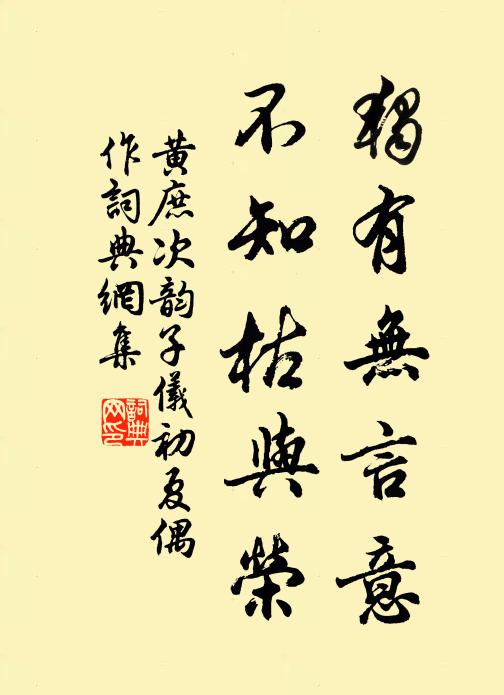 獨有無言意
不知枯與榮
黃庶次韵子儀初夏偶
作詞典網集
詞典
网印